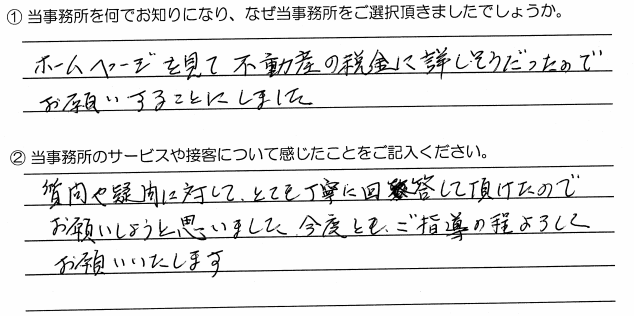 ① 当事務所を何でお知りになり、なぜ当事務所をご選択頂きましたでしょうか。
ホームページを見て不動産の税金に詳しそうだったので
お願いすることにしました
② 当事務所のサービスや接客について感じたことをご記入ください。
質問や疑問に対して、とても丁寧に回答して頂けたので
お願いしようと思いました。今度とも、ご指導の程よろしく
お願いいたします